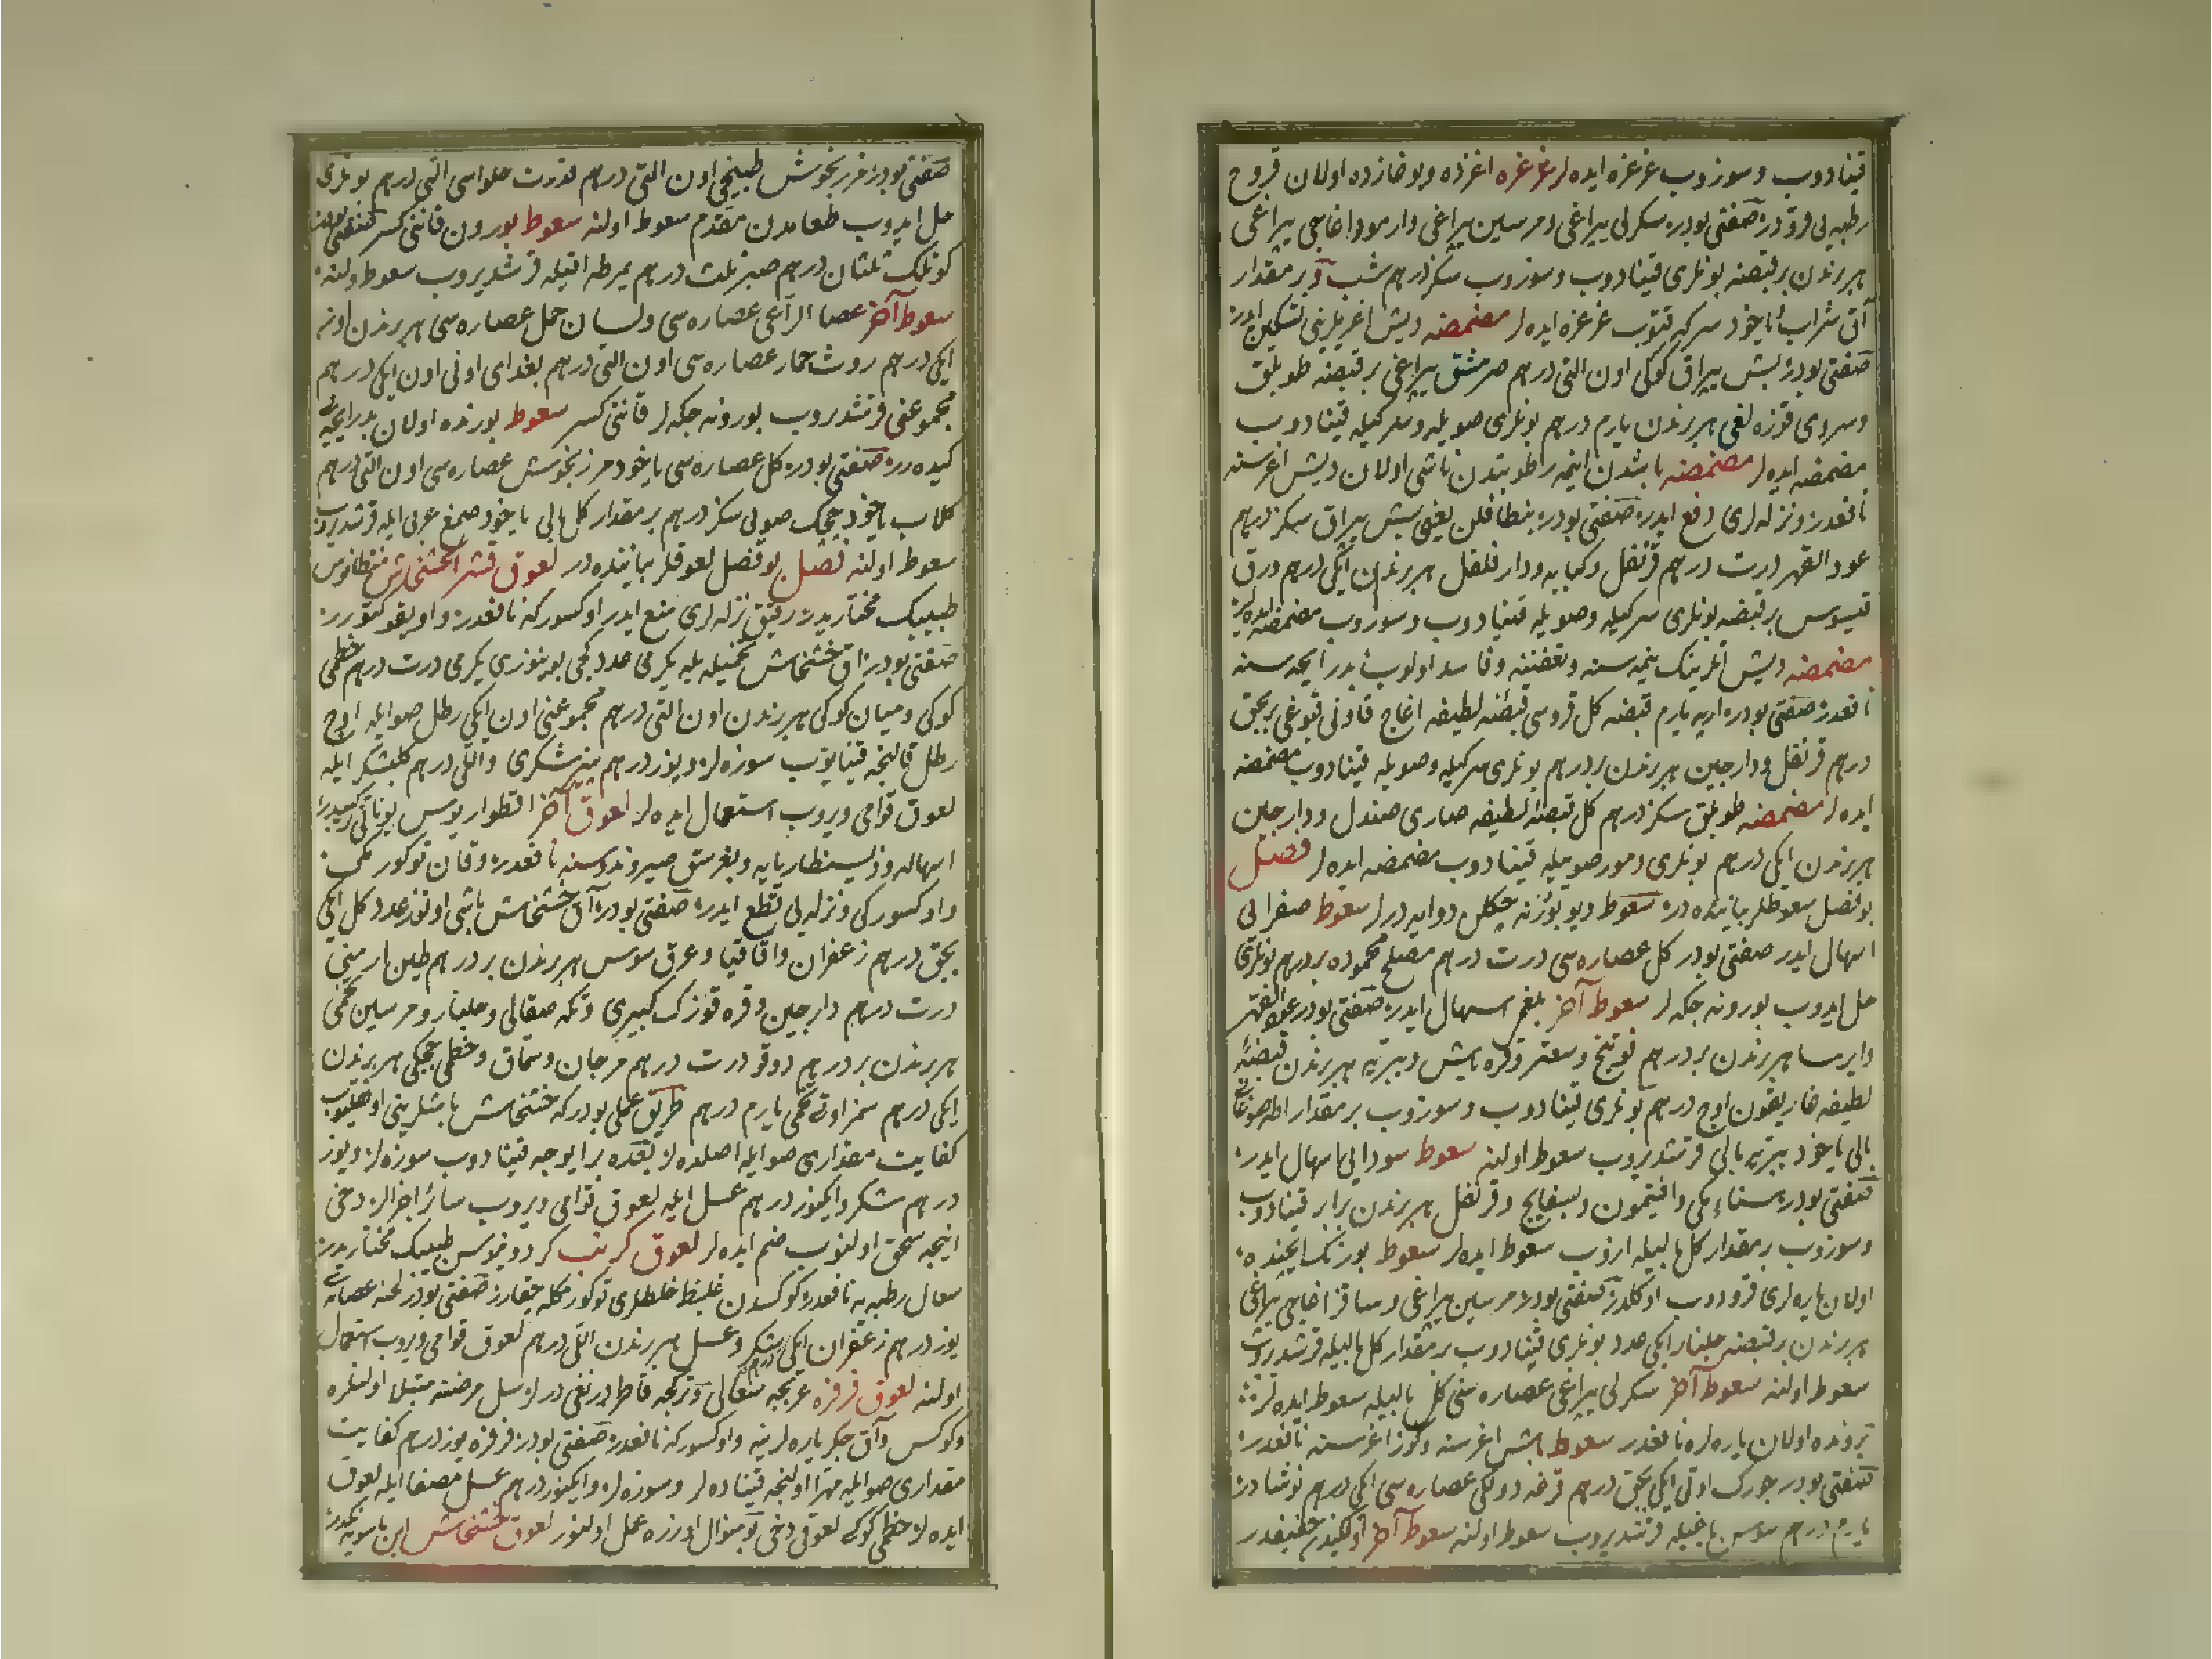 قینادوب و سوزوب غرغره ایده‌لر غرغره اغزده و بوغازده اولان قروح
رطبه‌یی قوردر صفتی بودر سکرلی یپراغی و مرسین یپراغی دار مود اغاجی یپراغی
هر برندن بر قبضه بونلری قینادوب و سوزوب سکز درهم شب و بر مقدار
آق شراب یاخود سرکه قتوب غرغره ایده‌لر مضمضه دیش اغریلرینی تسکین ایدر
صفتی بودر بش یپراق کوکی اون التی درهم یپراغی بر قبضه طوبلق
و سروی قوزه‌لغی هر برندن یارم درهم بونلری صویله و سرکیله قینادوب
مضمضه ایده‌لر مضمضه باشدن اینجه رطوبتدن ناشی اولان دیش اغرسنه
نافعدر و نزله‌لری دفع ایدر صفتی بودر بنطافلن یعنی بش یپراق سکز درهم
عود القهر درت درهم قرنفل و کبابه و دار فلفل هر برندن ایکی درهم ورق
قیسوس بر قبضه بونلری سرکیله و صویله قینادوب و سوزوب مضمضه ایده‌لر
مضمضه دیش اتلرینک ینمه‌سنه و تعفننه و فاسد اولوب بد رایحه‌سنه
نافعدر صفتی بودر اریه یارم قبضه کل قروسی قبضهٔ لطیفه اغاج قاونی قبوغی بر بچق
درهم قرنفل و دارچین هر برندن بر درهم بونلری سرکیله و صویله قینادوب مضمضه
ایده‌لر مضمضه طوبلق سکز درهم کل قبضهٔ لطیفه صاری صندل و دارچین
هر برندن ایکی درهم بونلری دمور صویله قینادوب مضمضه ایده‌لر فصل
بو فصل سعوطلر بیاننده‌در سعوط دیو بورنه چکلن دوایه دیرلر سعوط صفرایی
اسهال ایدر صفتی بودر کل عصاره‌سی درت درهم مصلح محموده بر درهم بونلری
حل ایدوب بورونه چکه‌لر سعوط آخر بلغم اسهال ایدر صفتی بودر عود القهر
و ایرسا هر برندن بر درهم فوتنج و سعتر و قره بیش و ببریه هر برندن قبضهٔ
لطیفه غاریقون اوچ درهم بونلری قینادوب و سوزوب بر مقدار اطه صوغانی
بالی یاخود ببریه بالی قرشدیروب سعوط اولنه سعوط سودایی اسهال ایدر
صفتی بودر سناء مکی و افتیمون و بسفایج و قرنفل هر برندن برابر قینادوب
و سوزوب بر مقدار کل بالیله ازوب سعوط ایده‌لر سعوط بورنک ایچنده
اولان یاره‌لری قورودوب اوکلدر صفتی بودر مرسین یپراغی و ساقز اغاجی یپراغی
هر برندن بر قبضه جلنار ایکی عدد بونلری قینادوب بر مقدار کل بالیله قرشدیروب
سعوط اولنه سعوط آخر سکرلی یپراغی عصاره‌سنی کل بالیله سعوط ایده‌لر
برونده اولان یاره‌لره نافعدر سعوط باش اغرسنه و کوز اغرسنه نافعدر
صفتی بودر چورک اوتی ایکی بچق درهم قرغه دولکی عصاره‌سی ایکی درهم نوشادر
یارم درهم سوسن یاغیله قرشدیروب سعوط اولنه سعوط آخر
صفتی بودر مرزنجوش طبیخی اون التی درهم قدرت حلواسی التی درهم بونلری
حل ایدوب طعامدن مقدم سعوط اولنه سعوط بورون قاننی کسر صفتی بودر
کونلک ثلثان درهم صبر ثلث درهم یمرطه اقیله قرشدیروب سعوط اولنه
سعوط آخر عصا الراعی عصاره‌سی و لسان حمل عصاره‌سی هر برندن اونر
ایکی درهم روث حمار عصاره‌سی اون التی درهم بغدای اونی اون ایکی درهم
مجموعنی قرشدیروب بورونه چکه‌لر قاننی کسر سعوط بورنده اولان بد رایحه‌یی
کیده‌رر صفتی بودر کل عصاره‌سی یاخود مرزنجوش عصاره‌سی اون التی درهم
کلاب یاخود چیچک صویی سکز درهم بر مقدار کل بالی یاخود صمغ عربی ایله قرشدیروب
سعوط اولنه فصل بو فصل لعوقلر بیاننده‌در لعوق قشر الخشخاش
طبیبک مختاریدر رقیق نزله‌لری منع ایدر اوکسورکه نافعدر و اویقو کتورر
صفتی بودر آق خشخاش تخمیله یله یکرمی عدد کچی بوینوزی یکرمی درت درهم خطمی
کوکی و میان کوکی هر برندن اون التی درهم مجموعنی اون ایکی رطل صو ایله اوچ
رطل قالنجه قینایوب سوزه‌لر و یوز درهم شکری و اللی درهم کلبشکر ایله
لعوق قوامی ویروب استعمال ایده‌لر لعوق آخر
اسهاله و ذیسنطاریایه و بغرسق صیروندوسنه نافعدر و قان توکورمک
و اوکسورکی و نزله‌یی قطع ایدر صفتی بودر آق خشخاش باشی اوتوز عدد کل ایکی
بچق درهم زعفران و اقاقیا و عرق سوس هر برندن بر درهم طین ارمنی
درت درهم دارچین و قره قوزک کبیری و تکه صقالی و جلنار و مرسین تخمی
هر برندن بر درهم دوقو درت درهم مرجان و سماق و خطمی چیچکی هر برندن
ایکی درهم سمزاوتی تخمی یارم درهم طریق عملی بودرکه خشخاش باشلرینی اوفلیوب
کفایت مقداری صو ایله اصلده‌لر بعده بر ایوجه قینادوب سوزه‌لر و یوز
درهم شکر و ایکیوز درهم عسل ایله لعوق قوامی ویروب سائر اجزالر دخی
اینجه سحق اولنوب ضم ایده‌لر لعوق کرنب طبیبک مختاریدر
سعال رطبه‌یه نافعدر کوکسدن غلیظ خلطلری توکورمکله چقارر صفتی بودر لحنه عصاره‌سی
یوز درهم زعفران ایکی درهم شکر و عسل هر برندن اللی درهم لعوق قوامی ویروب استعمال
اولنه لعوق قرقره عربجه سعالی و ترکجه قاطر درنغی درلر سل مرضنه مبتلا اولنلره
و کوکس و آق جکر یاره‌لرینه و اوکسورکه نافعدر صفتی بودر قرقره یوز درهم کفایت
مقداری صو ایله مهرا اولنجه قیناده‌لر و سوزه‌لر و ایکیوز درهم عسل مصفا ایله لعوق
ایده‌لر خطمی کوکی لعوقی دخی بو منوال اوزره عمل اولنور لعوق خشخاش ابن ماسویه